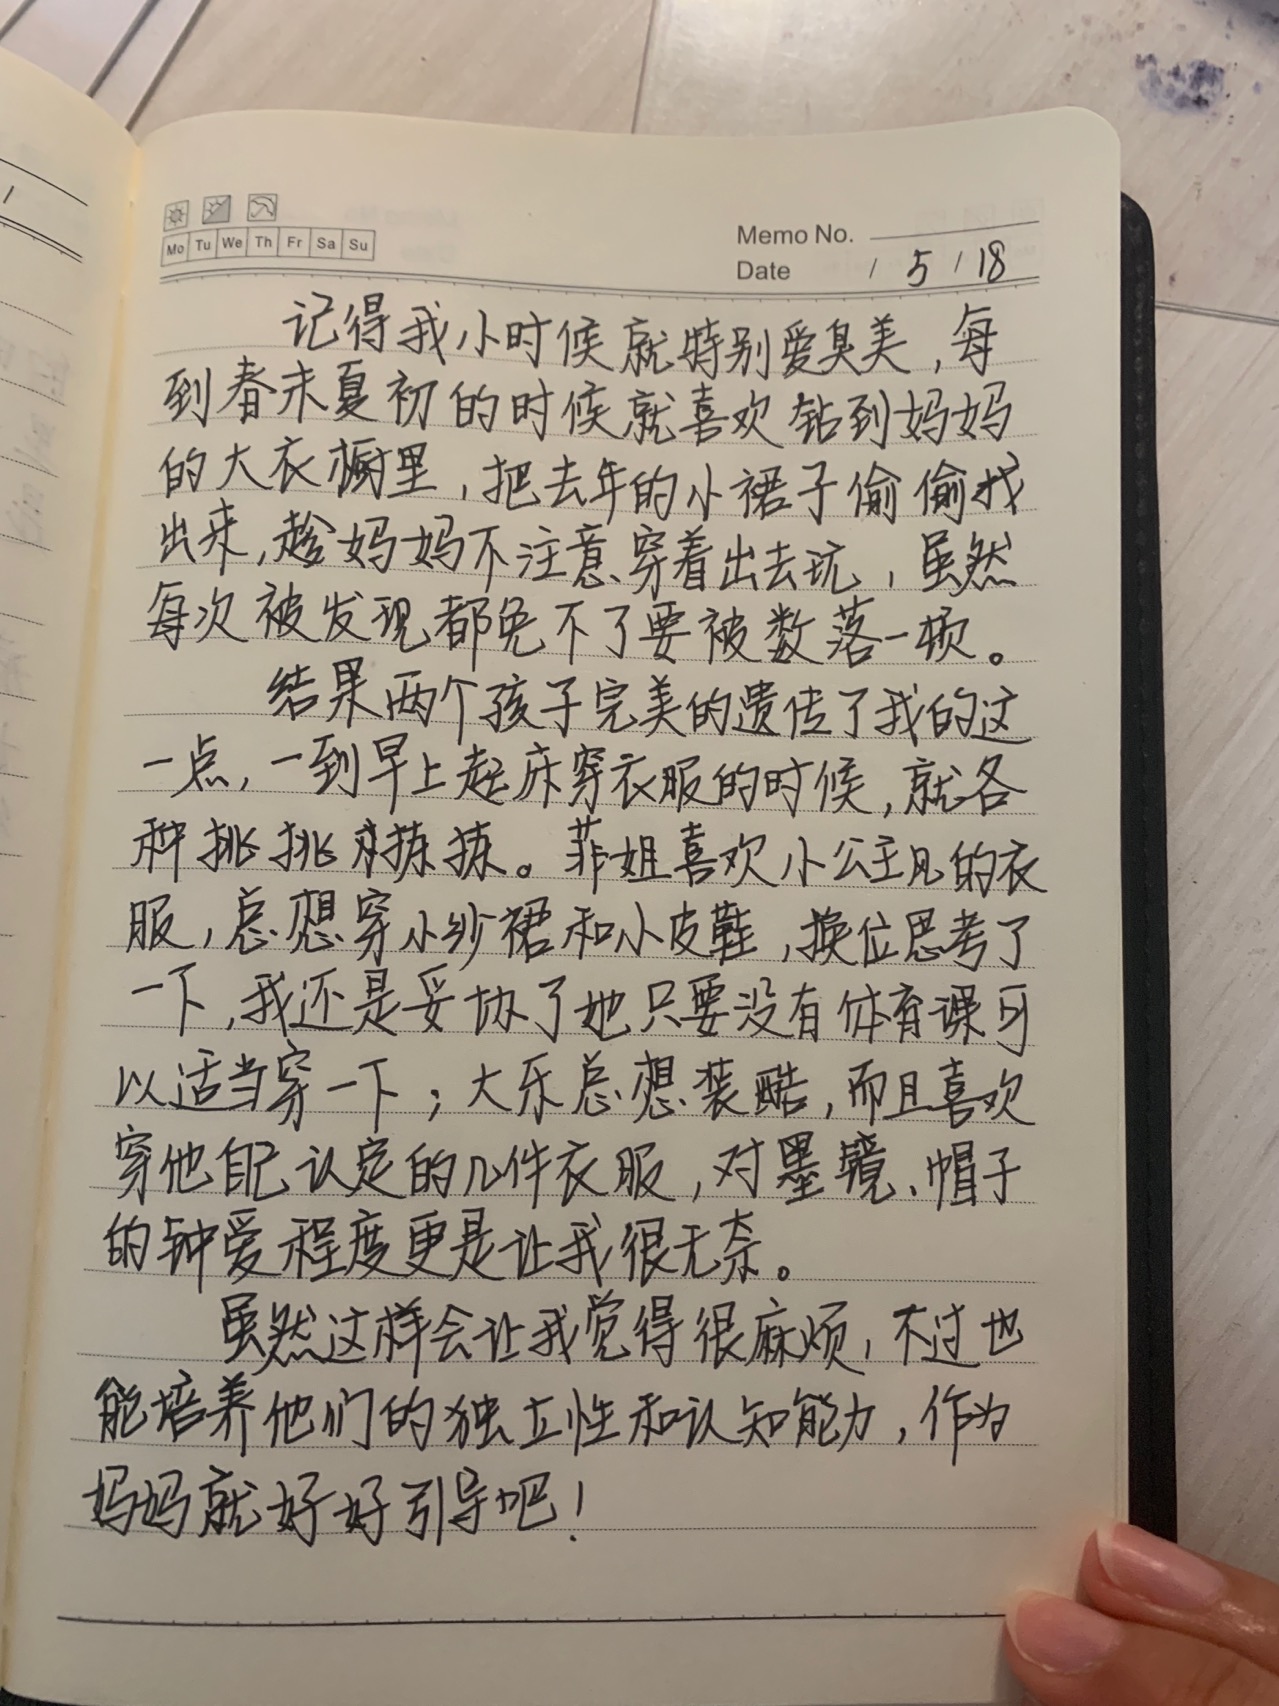 Mo Tu We Th Fr Sa Su
Memo No.
Date / 5 / 18
记得我小时候就特别爱臭美，每
到春末夏初的时候就喜欢钻到妈妈
的大衣橱里，把去年的小裙子偷偷找
出来，趁妈妈不注意穿着出去玩，虽然
每次被发现都免不了要被数落一顿。
结果两个孩子完美的遗传了我的这
一点，一到早上起床穿衣服的时候，就各
种挑挑拣拣。菲姐喜欢小公主风的衣
服，总想穿小纱裙和小皮鞋，换位思考了
一下，我还是妥协了她只要没有体育课可
以适当穿一下；大乐总想装酷，而且喜欢
穿他自己认定的几件衣服，对墨镜、帽子
的钟爱程度更是让我很无奈。
虽然这样会让我觉得很麻烦，不过也
能培养他们的独立性和认知能力，作为
妈妈就好好引导吧！